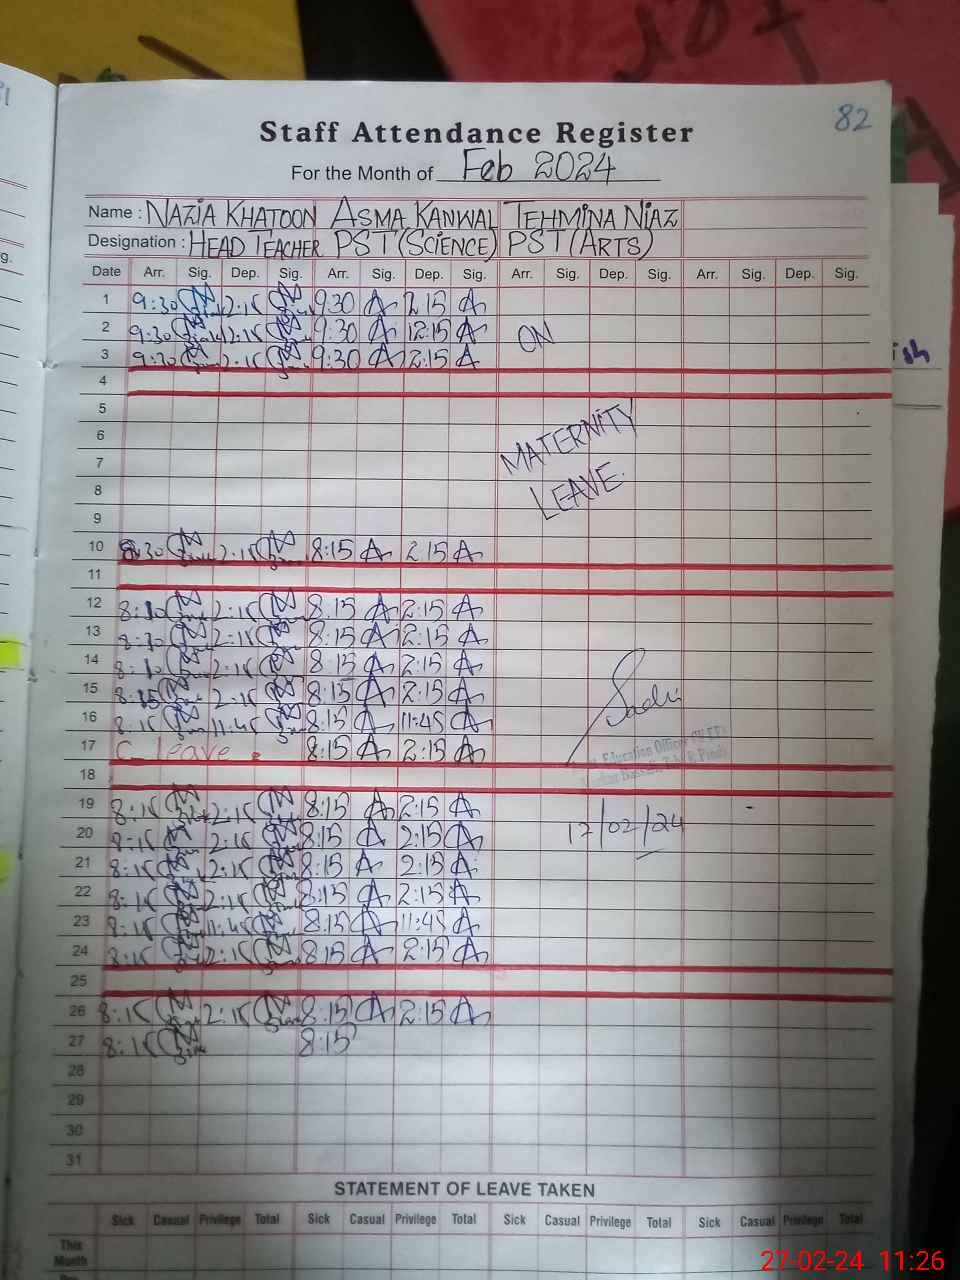 82
Staff Attendance Register
For the Month of Feb 2024
Name : NAZIA KHATOON ASMA KANWAL TEHMINA NIAZ
Designation : HEAD TEACHER PST (SCIENCE) PST (ARTS)
Date Arr. Sig. Dep. Sig. Arr. Sig. Dep. Sig. Arr. Sig. Dep. Sig. Arr. Sig. Dep. Sig.
1 9:30 2:15 9:30 A 2:15 A
2 9:30 12:15 9:30 A 12:15 A ON
3 9:30 2:15 9:30 A 2:15 A
4
5
6 MATERNITY
7
8 LEAVE.
9
10 8:30 2:15 8:15 A 2:15 A
11
12 8:10 2:15 8:15 A 2:15 A
13 8:10 2:15 8:15 A 2:15 A
14 8:10 2:15 8:15 A 2:15 A
15 8:15 2:15 8:15 A 2:15 A
16 8:15 11:45 8:15 A 11:45 A
17 C. leave. 8:15 A 2:15 A
Education Officer
18
19 8:15 2:15 8:15 A 2:15 A
20 8:15 2:15 8:15 A 2:15 A 17/02/24
21 8:15 2:15 8:15 A 2:15 A
22 8:15 2:15 8:15 A 2:15 A
23 8:15 11:45 8:15 A 11:45 A
24 8:15 2:15 8:15 A 2:15 A
25
26 8:15 2:15 8:15 A 2:15 A
27 8:15 8:15
28
29
30
31
STATEMENT OF LEAVE TAKEN
Sick Casual Privilege Total Sick Casual Privilege Total Sick Casual Privilege Total Sick Casual Privilege Total
This
Month
27-02-24 11:26